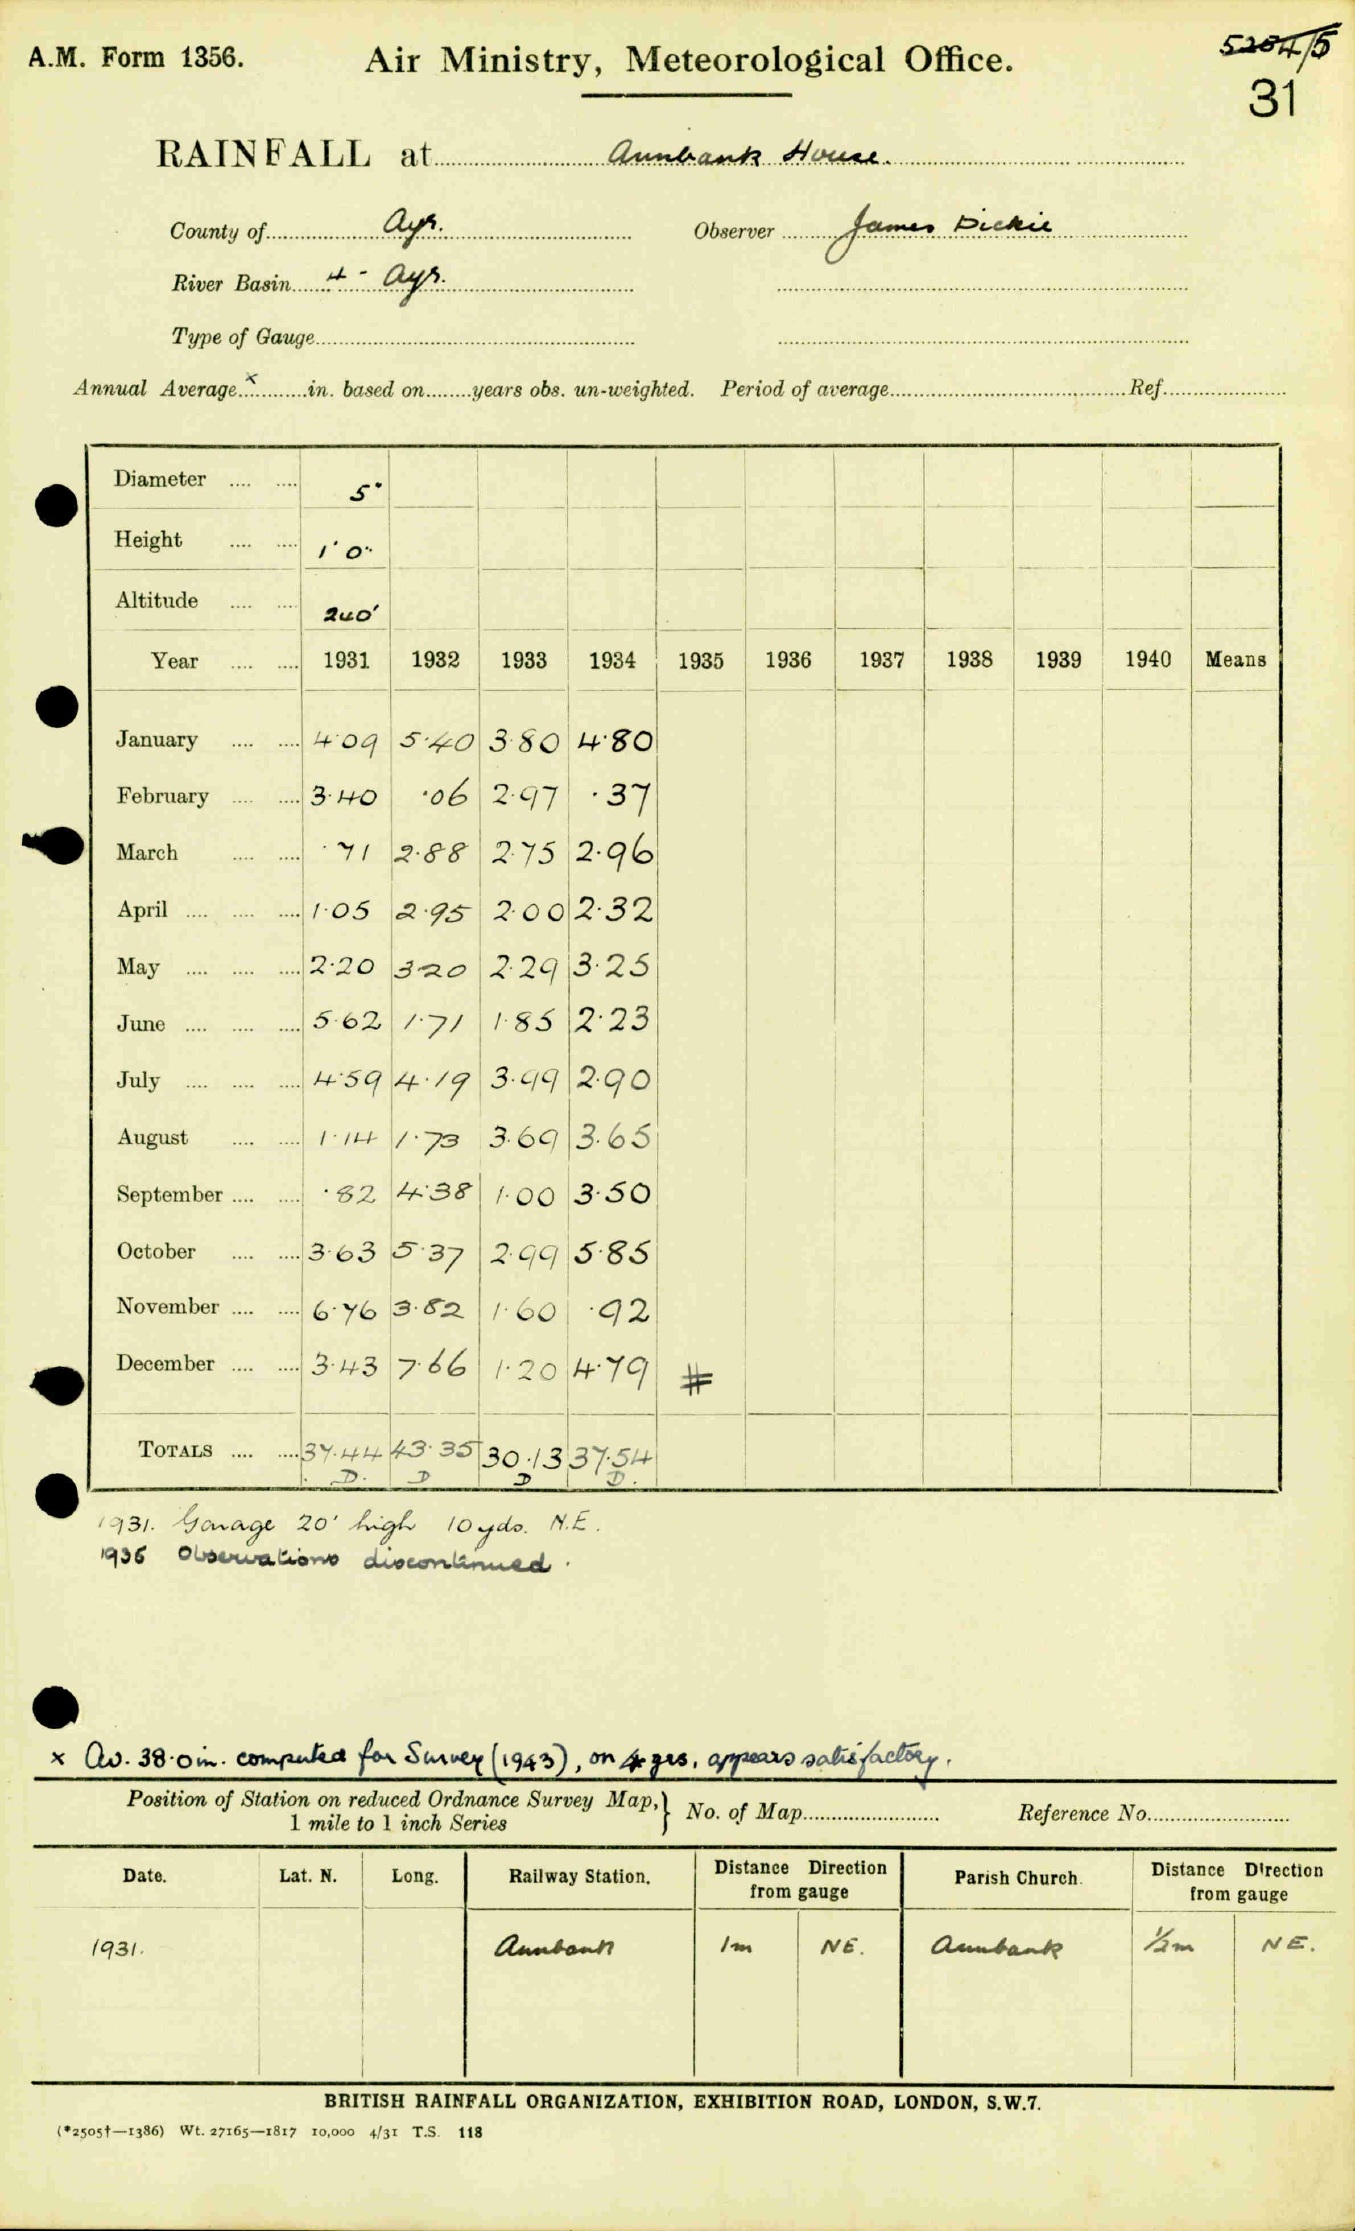 A.M. Form 1356.
Air Ministry, Meteorological Office.
5204/5
31
RAINFALL at Annbank House.
County of Ayr. Observer James Dickie
River Basin 4 - Ayr.
Type of Gauge
Annual Average x in. based on years obs. un-weighted. Period of average Ref.
Diameter 5"
Height 1' 0"
Altitude 240'
Year 1931 1932 1933 1934 1935 1936 1937 1938 1939 1940 Means
January 4·09 5·40 3·80 4·80
February 3·40 ·06 2·97 ·37
March ·71 2·88 2·75 2·96
April 1·05 2·95 2·00 2·32
May 2·20 3·20 2·29 3·25
June 5·62 1·71 1·85 2·23
July 4·59 4·19 3·99 2·90
August 1·14 1·73 3·69 3·65
September ·82 4·38 1·00 3·50
October 3·63 5·37 2·99 5·85
November 6·76 3·82 1·60 ·92
December 3·43 7·66 1·20 4·79 #
TOTALS 37·44 43·35 30·13 37·54
D. D D D.
1931. Garage 20' high 10 yds. N.E.
1935 Observations discontinued.
x Av. 38·0 in. computed for Survey (1943), on 4 yrs, appears satisfactory.
Position of Station on reduced Ordnance Survey Map, } No. of Map Reference No.
1 mile to 1 inch Series
Date. Lat. N. Long. Railway Station. Distance Direction from gauge Parish Church. Distance Direction from gauge
1931. Annbank 1m NE. Annbank 1/2m NE.
BRITISH RAINFALL ORGANIZATION, EXHIBITION ROAD, LONDON, S.W.7.
(*2505†—1386) Wt. 27165—1817 10,000 4/31 T.S. 118